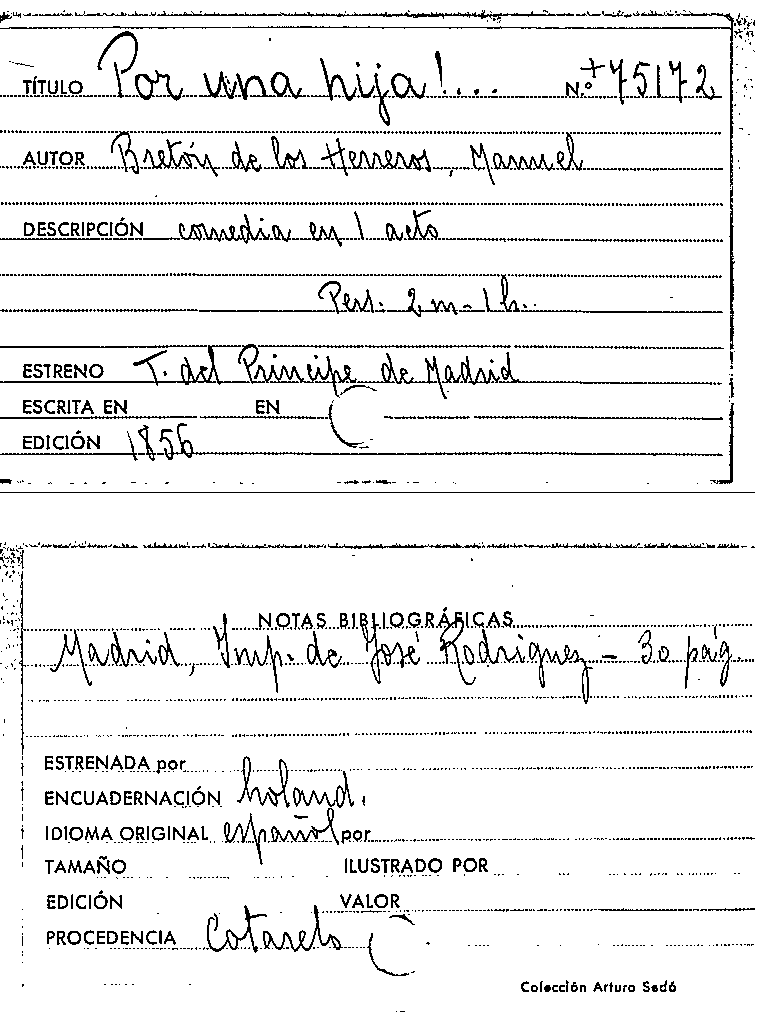 TÍTULO Por una hija!... N.º +75172
AUTOR Bretón de los Herreros, Manuel
DESCRIPCIÓN comedia en 1 acto
Pers. 2 m - 1 h.
ESTRENO T. del Principe de Madrid
ESCRITA EN EN
EDICIÓN 1856
NOTAS BIBLIOGRÁFICAS
Madrid, Imp. de José Rodriguez - 30 pág.
ESTRENADA por
ENCUADERNACIÓN holand.
IDIOMA ORIGINAL español por
TAMAÑO ILUSTRADO POR
EDICIÓN VALOR
PROCEDENCIA Cotarelo
Colección Arturo Sedó